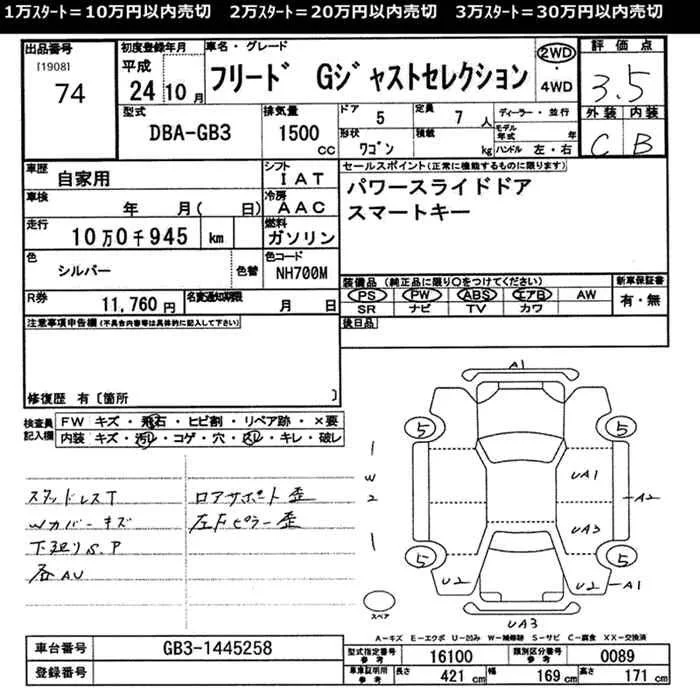 1万ｽﾀｰﾄ＝10万円以内売切　2万ｽﾀｰﾄ＝20万円以内売切　3万ｽﾀｰﾄ＝30万円以内売切
出品番号
[1908]
74
初度登録年月
平成
24 10 月
車名・グレード
フリード Gジャストセレクション
2WD
・
4WD
評価点
3.5
外装 内装
C B
型式
DBA-GB3
排気量
1500 cc
ドア 5
定員 7 人
形状 ワゴン
積載 kg
ディーラー・並行
モデル年式 年
ハンドル 左・右
車歴
自家用
シフト
IAT
車検
年 月( 日)
冷房
AAC
走行
10万0千945 km
燃料
ガソリン
色
シルバー
色替
色コード
NH700M
R券
11,760 円
名変通知期限
月 日
セールスポイント(正常に機能するものに限ります)
パワースライドドア
スマートキー
装備品 (純正品に限り○をつけてください)
PS PW ABS エアB AW
SR ナビ TV カワ
新車保証書
有・無
後日品
注意事項申告欄(不具合内容等は具体的に記入して下さい)
修復歴 有〔箇所 〕
検査員記入欄
FW キズ・飛石・ヒビ割・リペア跡・×要
内装 キズ・汚レ・コゲ・穴・スレ・キレ・破レ
スタッドレスT
Wカバーキズ
下廻りS.P
各AU
ロアサポート歪
左Fピラー歪
1
W
2
1
A1
5 5
UA1
A2
UA3
5 5
U2 U2 A1
UA3
スペア
A－キズ E－エクボ U－凹み W－補修跡 S－サビ C－腐食 XX－交換済
車台番号
GB3-1445258
登録番号
型式指定番号 参考 16100
類別区分番号 参考 0089
車庫証明用 参考 長さ 421 cm 幅 169 cm 高さ 171 cm